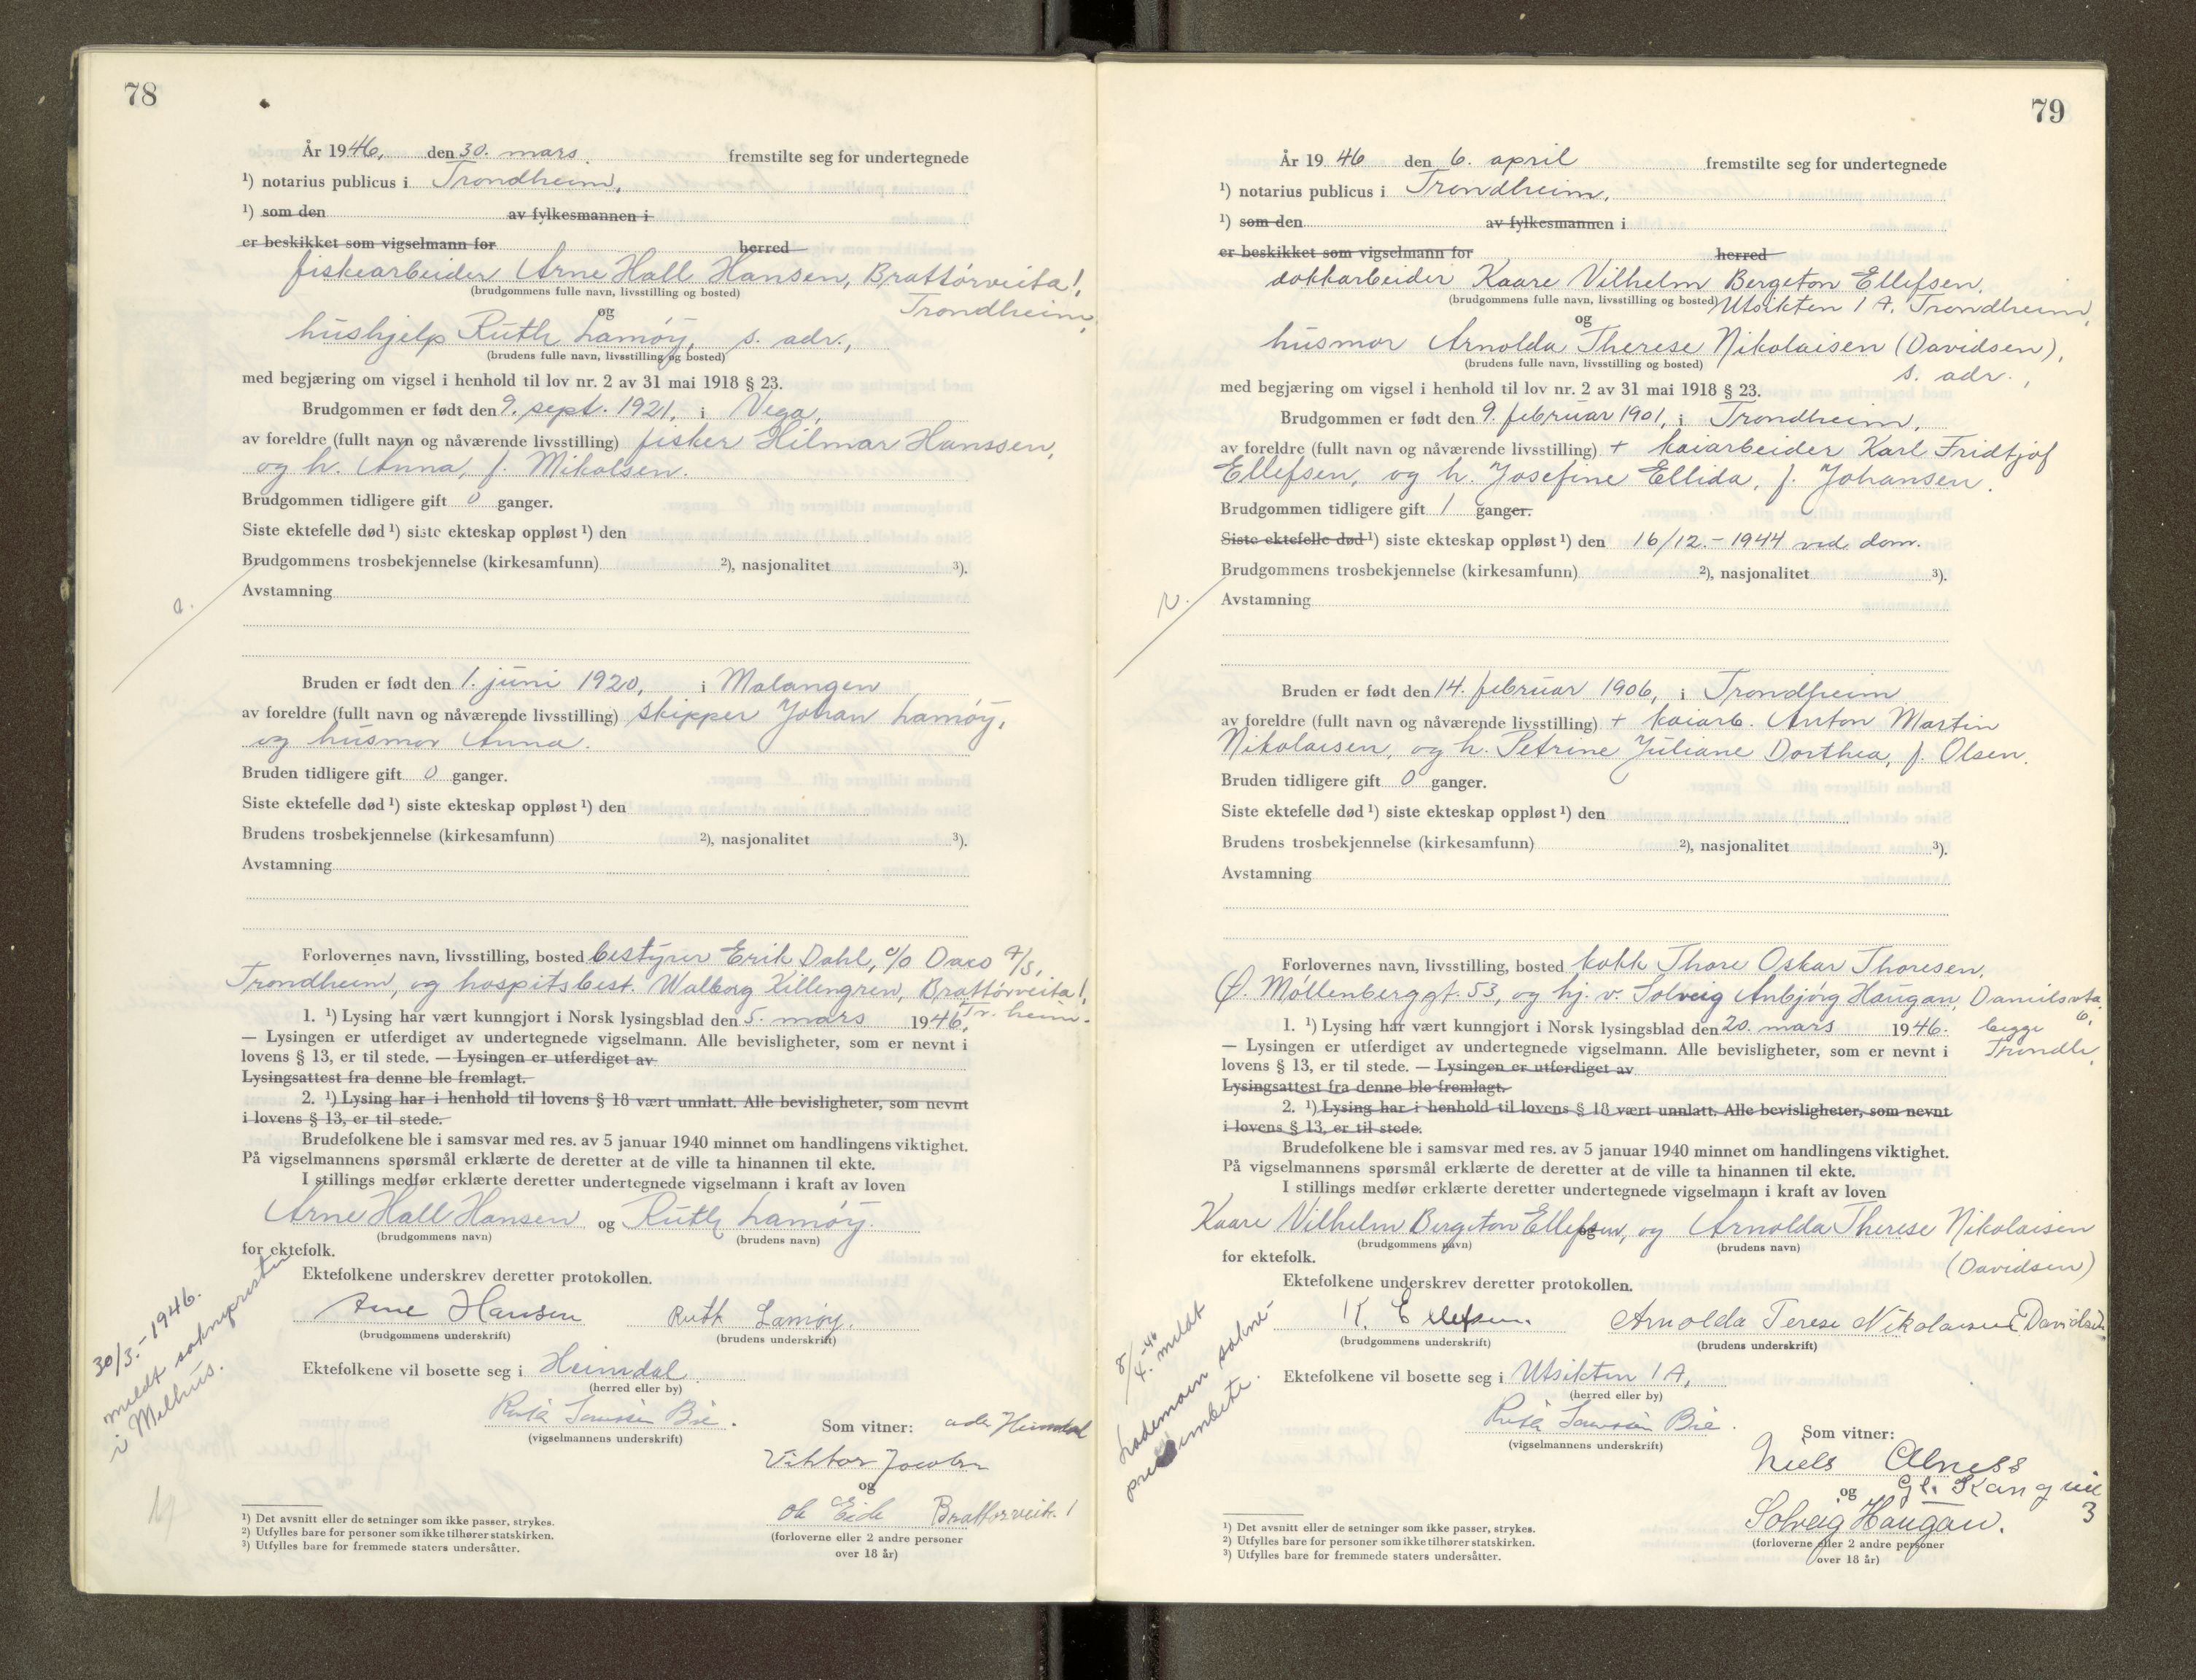 78
År 1946, den 30. mars. fremstilte seg for undertegnede
¹) notarius publicus i Trondheim,
¹) som den av fylkesmannen i
er beskikket som vigselmann for herred
fiskearbeider Arne Hall Hansen, Brattørveita 1,
(brudgommens fulle navn, livsstilling og bosted)
Trondheim,
og
hushjelp Ruth Lamøy, s. adr.,
(brudens fulle navn, livsstilling og bosted)
med begjæring om vigsel i henhold til lov nr. 2 av 31 mai 1918 § 23.
Brudgommen er født den 9. sept. 1921, i Vega,
av foreldre (fullt navn og nåværende livsstilling) fisker Hilmar Hanssen,
og h. Anna, f. Mikalsen.
Brudgommen tidligere gift 0 ganger.
Siste ektefelle død ¹) siste ekteskap oppløst ¹) den
Brudgommens trosbekjennelse (kirkesamfunn) ²), nasjonalitet ³).
Avstamning
Bruden er født den 1. juni 1920, i Malangen
av foreldre (fullt navn og nåværende livsstilling) skipper Johan Lamøy,
og husmor Anna.
Bruden tidligere gift 0 ganger.
Siste ektefelle død ¹) siste ekteskap oppløst ¹) den
Brudens trosbekjennelse (kirkesamfunn) ²), nasjonalitet ³).
Avstamning
Forlovernes navn, livsstilling, bosted bestyrer Erik Dahl, c/o Daco A/S,
Trondheim, og hospitsbest. Walborg Killengren, Brattørveita 1,
Tr.heim.
1. ¹) Lysing har vært kunngjort i Norsk lysingsblad den 5. mars 1946.
— Lysingen er utferdiget av undertegnede vigselmann. Alle bevisligheter, som er nevnt i
lovens § 13, er til stede. — Lysingen er utferdiget av
Lysingsattest fra denne ble fremlagt.
2. ¹) Lysing har i henhold til lovens § 18 vært unnlatt. Alle bevisligheter, som nevnt
i lovens § 13, er til stede.
Brudefolkene ble i samsvar med res. av 5 januar 1940 minnet om handlingens viktighet.
På vigselmannens spørsmål erklærte de deretter at de ville ta hinannen til ekte.
I stillings medfør erklærte deretter undertegnede vigselmann i kraft av loven
Arne Hall Hansen og Ruth Lamøy.
(brudgommens navn) (brudens navn)
for ektefolk.
Ektefolkene underskrev deretter protokollen.
Arne Hansen Ruth Lamøy.
(brudgommens underskrift) (brudens underskrift)
30/3.-1946.
meldt soknepresten
i Melhus.
Ektefolkene vil bosette seg i Heimdal
(herred eller by)
(vigselmannens underskrift)
Som vitner: adr Heimdal
Viktor Jacobsen
og
Ole Eide Brattørveit. 1
(forloverne eller 2 andre personer
over 18 år)
¹) Det avsnitt eller de setninger som ikke passer, strykes.
²) Utfylles bare for personer som ikke tilhører statskirken.
³) Utfylles bare for fremmede staters undersåtter.
79
År 1946 den 6. april fremstilte seg for undertegnede
¹) notarius publicus i Trondheim,
¹) som den av fylkesmannen i
er beskikket som vigselmann for herred
dokkarbeider Kaare Vilhelm Bergeton Ellefsen,
(brudgommens fulle navn, livsstilling og bosted) Utsikten 1 A, Trondheim,
og
husmor Arnolda Therese Nikolaisen (Davidsen),
(brudens fulle navn, livsstilling og bosted)
s. adr.,
med begjæring om vigsel i henhold til lov nr. 2 av 31 mai 1918 § 23.
Brudgommen er født den 9. februar 1901, i Trondheim,
av foreldre (fullt navn og nåværende livsstilling) + kaiarbeider Karl Fridtjof
Ellefsen, og h. Josefine Ellida, f. Johansen.
Brudgommen tidligere gift 1 ganger.
Siste ektefelle død ¹) siste ekteskap oppløst ¹) den 16/12.-1944 ved dom.
Brudgommens trosbekjennelse (kirkesamfunn) ²), nasjonalitet ³).
Avstamning
Bruden er født den 14. februar 1906, i Trondheim
av foreldre (fullt navn og nåværende livsstilling) + kaiarb. Anton Martin
Nikolaisen, og h. Petrine Juliane Dorthea, f. Olsen.
Bruden tidligere gift 0 ganger.
Siste ektefelle død ¹) siste ekteskap oppløst ¹) den
Brudens trosbekjennelse (kirkesamfunn) ²), nasjonalitet ³).
Avstamning
Forlovernes navn, livsstilling, bosted kokk Thore Oskar Thoresen,
Ø. Møllenberggt. 53, og hj. v. Solveig Anbjørg Haugan, Danielsvta.
6,
begge
Trondh.
1. ¹) Lysing har vært kunngjort i Norsk lysingsblad den 20. mars 1946.
— Lysingen er utferdiget av undertegnede vigselmann. Alle bevisligheter, som er nevnt i
lovens § 13, er til stede. — Lysingen er utferdiget av
Lysingsattest fra denne ble fremlagt.
2. ¹) Lysing har i henhold til lovens § 18 vært unnlatt. Alle bevisligheter, som nevnt
i lovens § 13, er til stede.
Brudefolkene ble i samsvar med res. av 5 januar 1940 minnet om handlingens viktighet.
På vigselmannens spørsmål erklærte de deretter at de ville ta hinannen til ekte.
I stillings medfør erklærte deretter undertegnede vigselmann i kraft av loven
Kaare Vilhelm Bergeton Ellefsen, og Arnolda Therese Nikolaisen
(brudgommens navn) og (brudens navn)
(Davidsen)
for ektefolk.
Ektefolkene underskrev deretter protokollen.
K. Ellefsen. Arnolda Terese Nikolaisen (Davidsen
(brudgommens underskrift) (brudens underskrift)
8/4.-46 meldt
Lademoen sokne-
prestembete.
Ektefolkene vil bosette seg i Utsikten 1 A,
(herred eller by)
(vigselmannens underskrift)
Som vitner:
Niels Alness
og Gl. Kongvei
3
Solveig Haugan.
(forloverne eller 2 andre personer
over 18 år)
¹) Det avsnitt eller de setninger som ikke passer, strykes.
²) Utfylles bare for personer som ikke tilhører statskirken.
³) Utfylles bare for fremmede staters undersåtter.